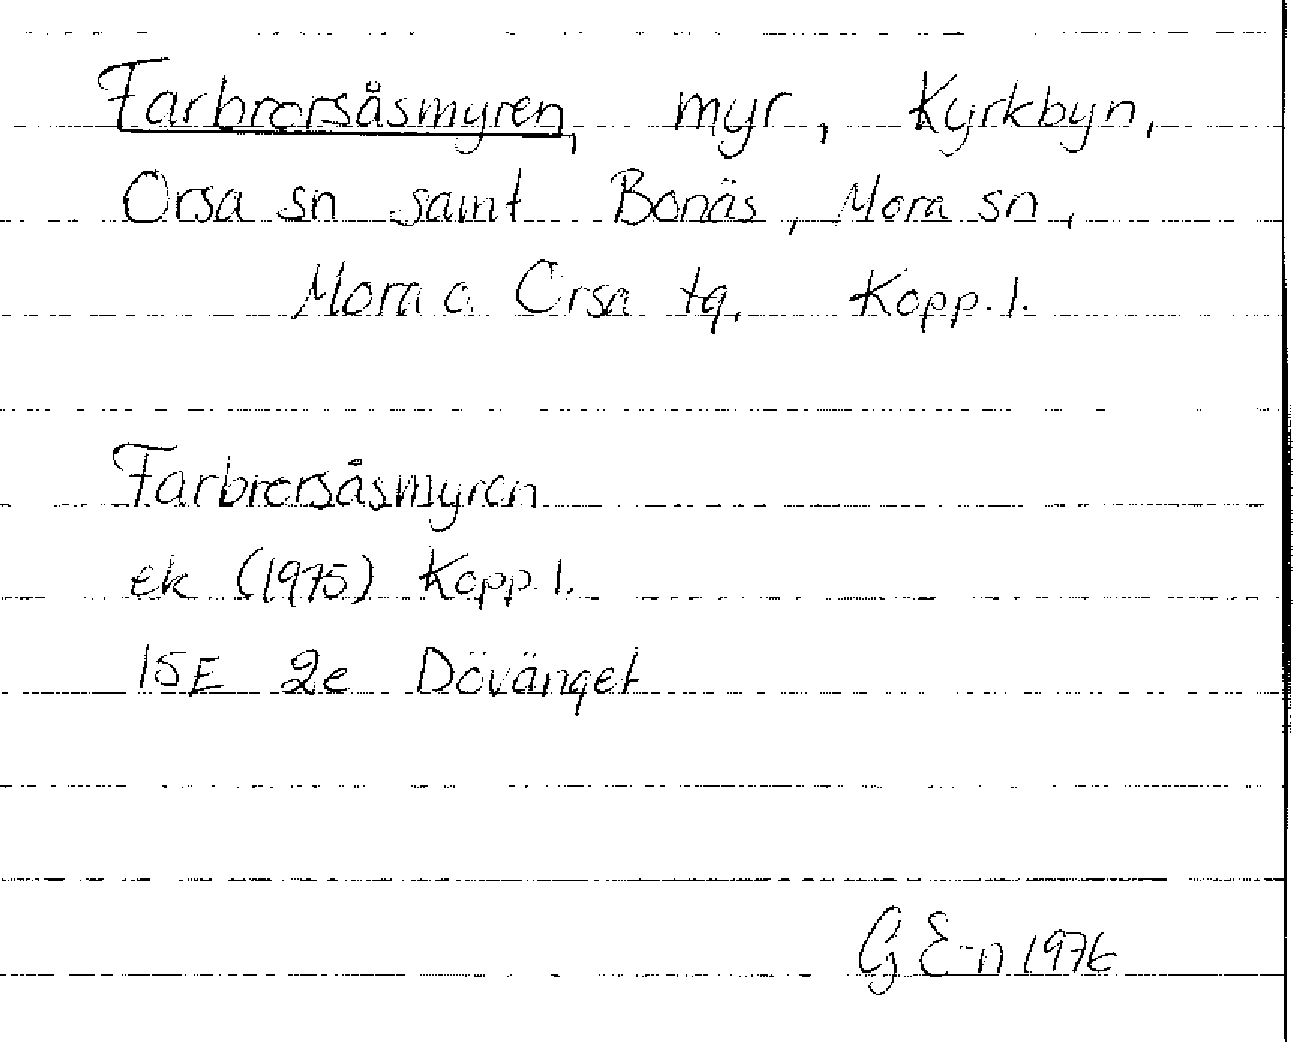 Farbrorsåsmyren, myr, Kyrkbyn,
Orsa sn samt Bonäs, Mora sn,
Mora o. Orsa tg. Kopp. l.
Farbrorsåsmyren
ek (1975) Kopp. l.
15E 2e Dövänget
G E-n 1976